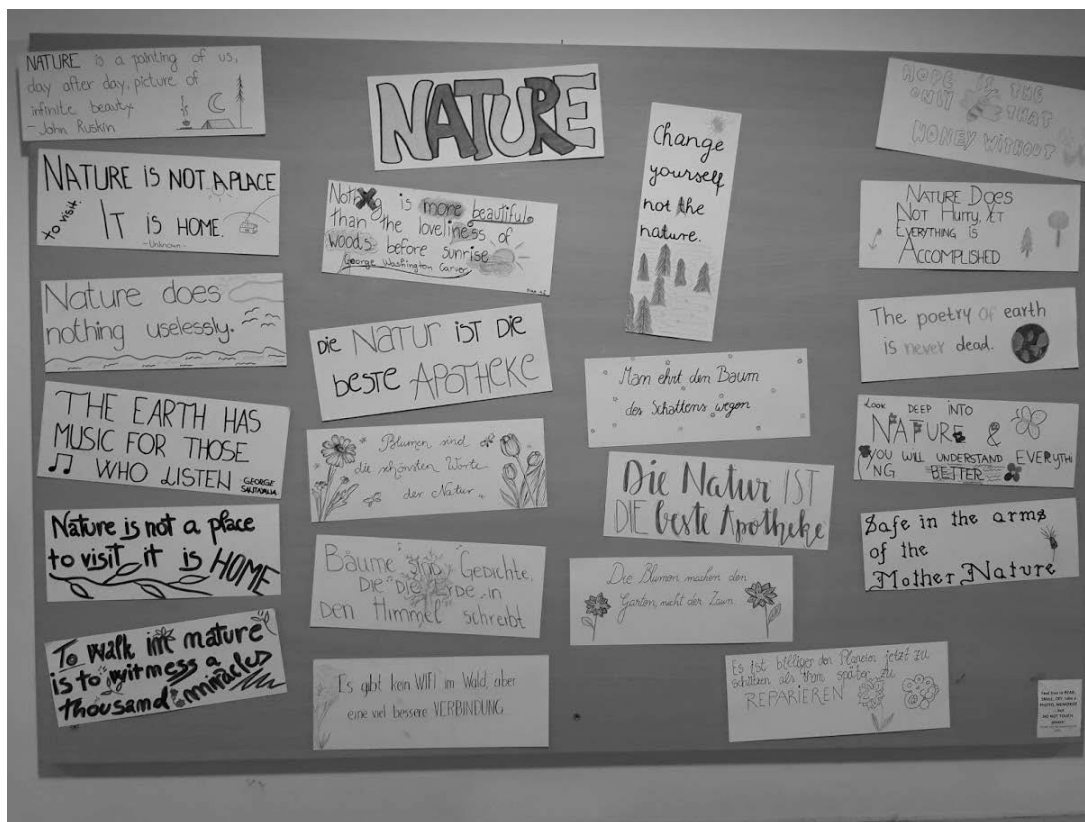 NATURE is a painting of us,
day after day, picture of
infinite beauty
- John Ruskin
NATURE IS NOT A PLACE
to visit.
IT IS HOME.
- Unknown -
Nature does
nothing uselessly.
THE EARTH HAS
MUSIC FOR THOSE
WHO LISTEN
GEORGE
Nature is not a place
to visit it is HOME
To Walk in nature
is to witness a
thousand miracles
NATURE
Nothing is more beautiful
than the loveliness of
woods before sunrise
George Washington Carver
DIE NATUR IST DIE
BESTE APOTHEKE
Blumen sind
die schönsten Worte
der Natur
BÄUME SIND GEDICHTE,
DIE DIE ERDE IN
DEN HIMMEL SCHREIBT
Es gibt kein WIFI im Wald, aber
eine viel bessere VERBINDUNG
Change
yourself
not the
nature.
Man ehrt den Baum
des Schattens wegen
Die Natur IST
DIE beste Apotheke
Die Blumen machen den
Garten, nicht der Zaun.
Es ist billiger den Planeten jetzt zu
schützen als ihn später zu
REPARIEREN
HOPE IS THE
ONLY THAT
HONEY WITHOUT
NATURE DOES
NOT HURRY, YET
EVERYTHING IS
ACCOMPLISHED
The poetry of earth
is never dead.
LOOK DEEP INTO
NATURE &
YOU WILL UNDERSTAND EVERYTHI
NG BETTER
Safe in the arms
of the
Mother Nature
DO NOT TOUCH